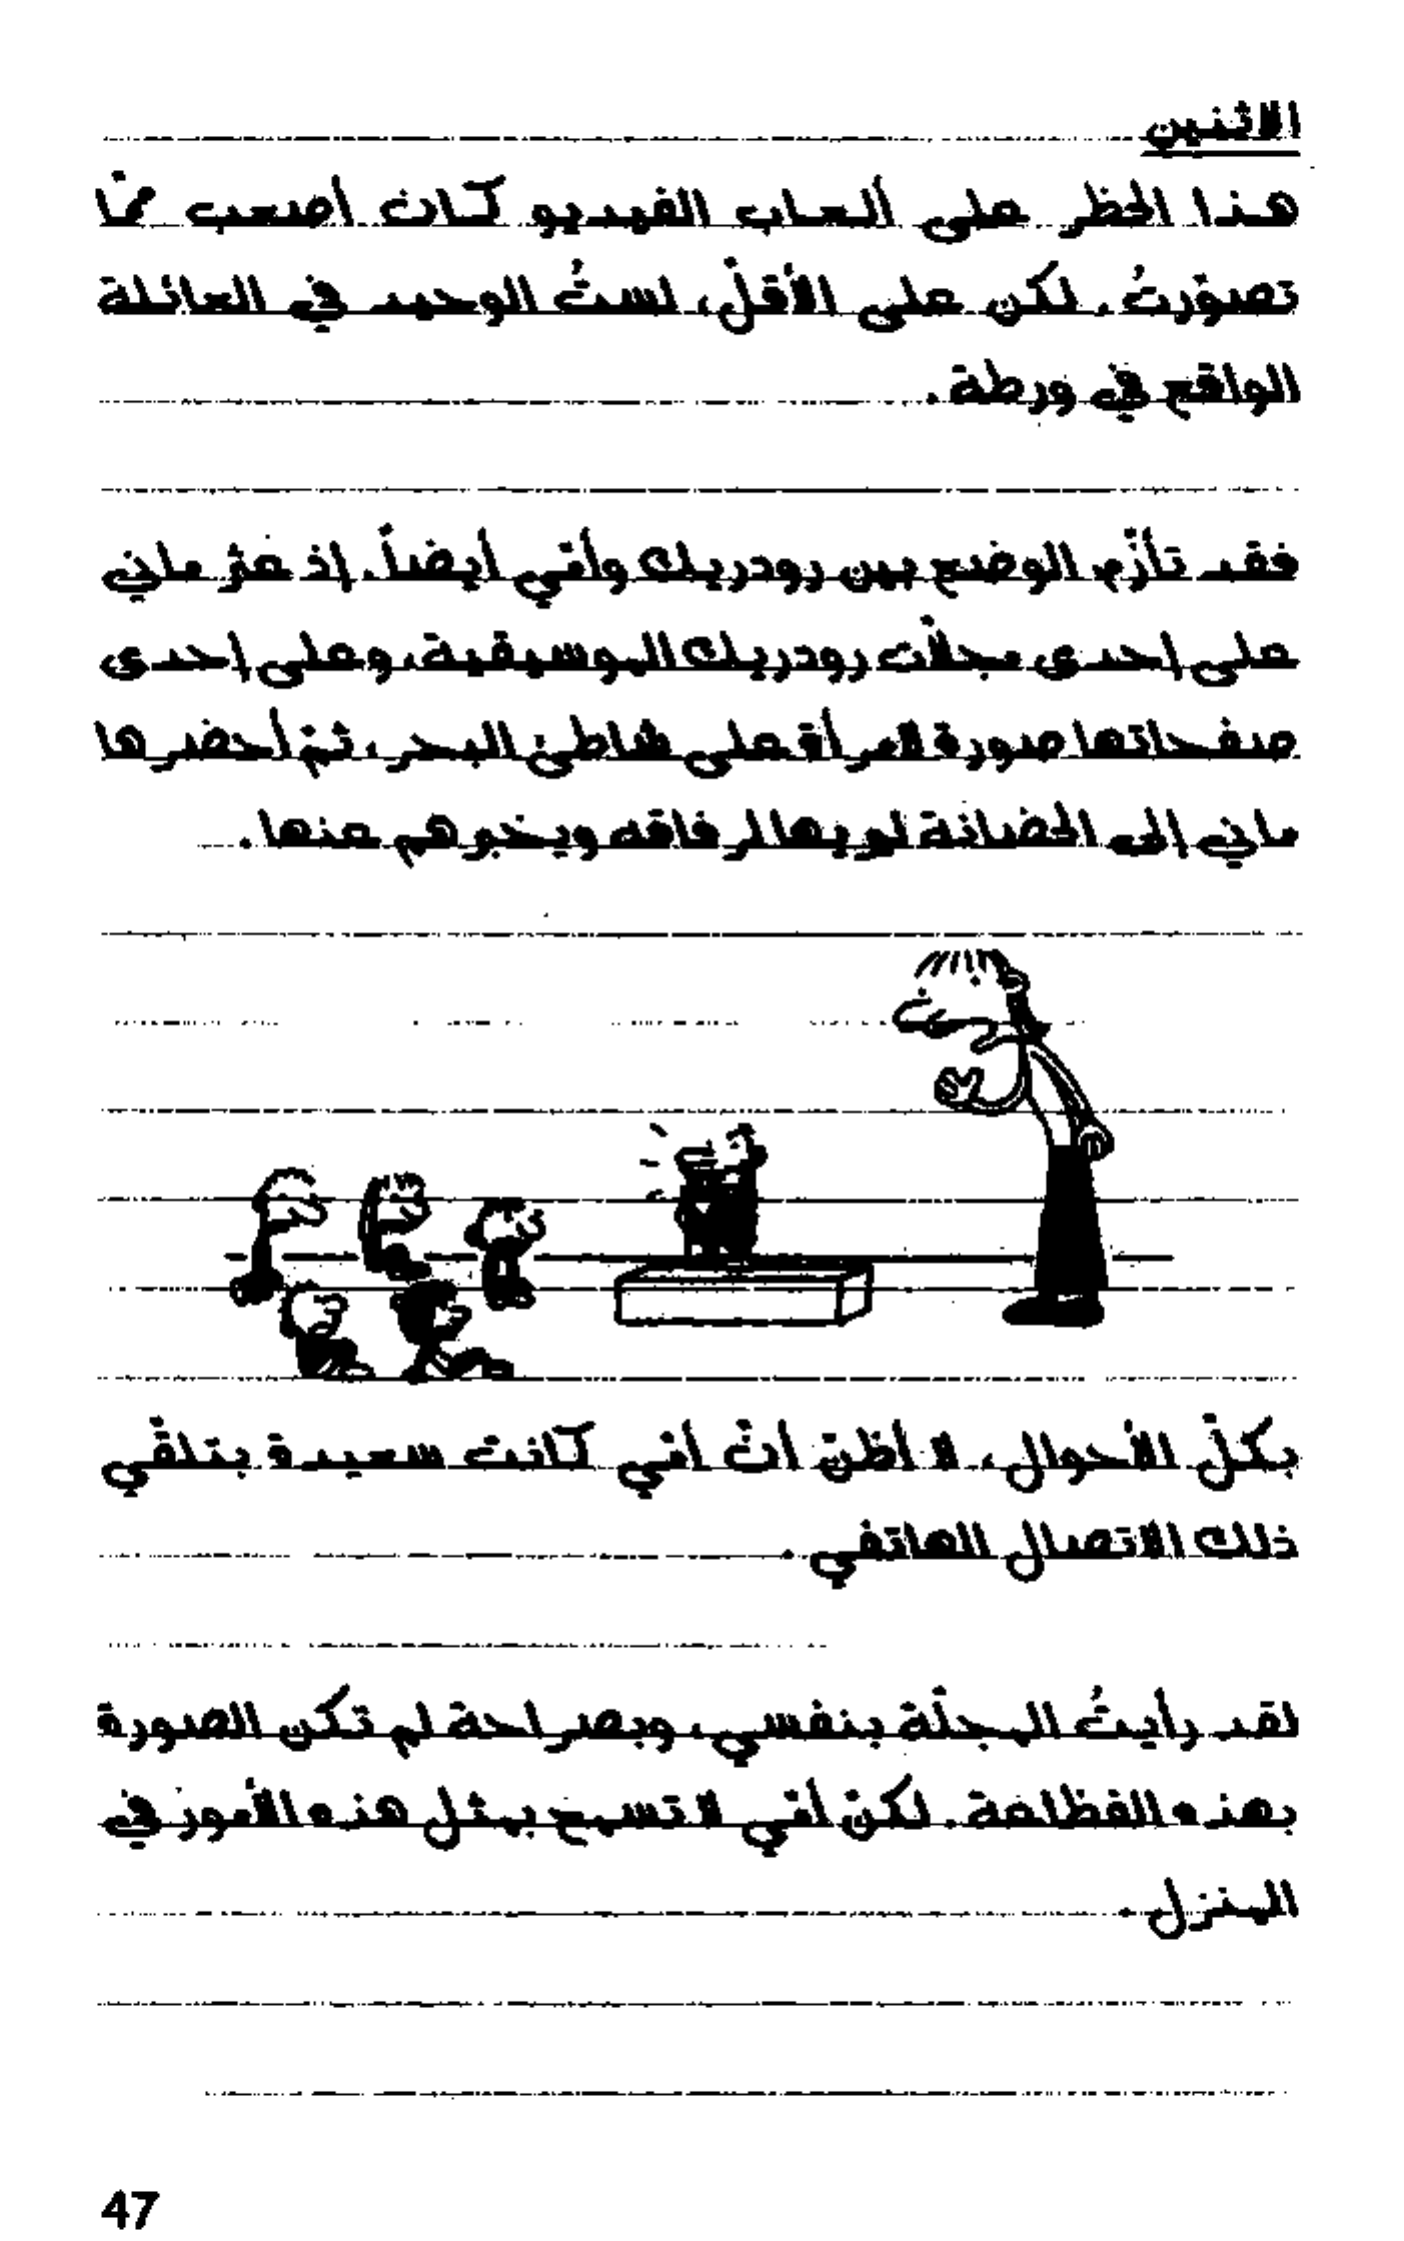 الاثنين
هذا الحظر على ألعاب الفيديو كان أصعب ممّا
تصوّرتُ. لكن على الأقلّ، لستُ الوحيد في العائلة
الواقع في ورطة.
فقد تأزّم الوضع بين رودريك وأمّي أيضاً. إذ عثر ماني
على إحدى مجلّات رودريك الموسيقية، وعلى إحدى
صفحاتها صورة لامرأة على شاطئ البحر، ثمّ أحضرها
ماني إلى الحضانة ليريها لرفاقه ويخبرهم عنها.
بكلّ الأحوال، لا أظنّ أنّ أمّي كانت سعيدة بتلقّي
ذلك الاتصال الهاتفي.
لقد رأيتُ المجلّة بنفسي، وبصراحة لم تكن الصورة
بهذه الفظاعة. لكنّ أمّي لا تسمح بمثل هذه الأمور في
المنزل.
47